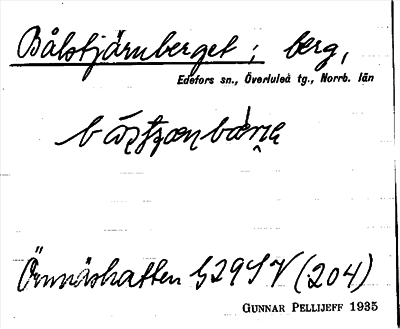 Bålstjärnberget; berg,
Edefors sn., Överluleå tg., Norrb. län
Örnnäshatten 529SV (204)
GUNNAR PELLIJEFF 1935